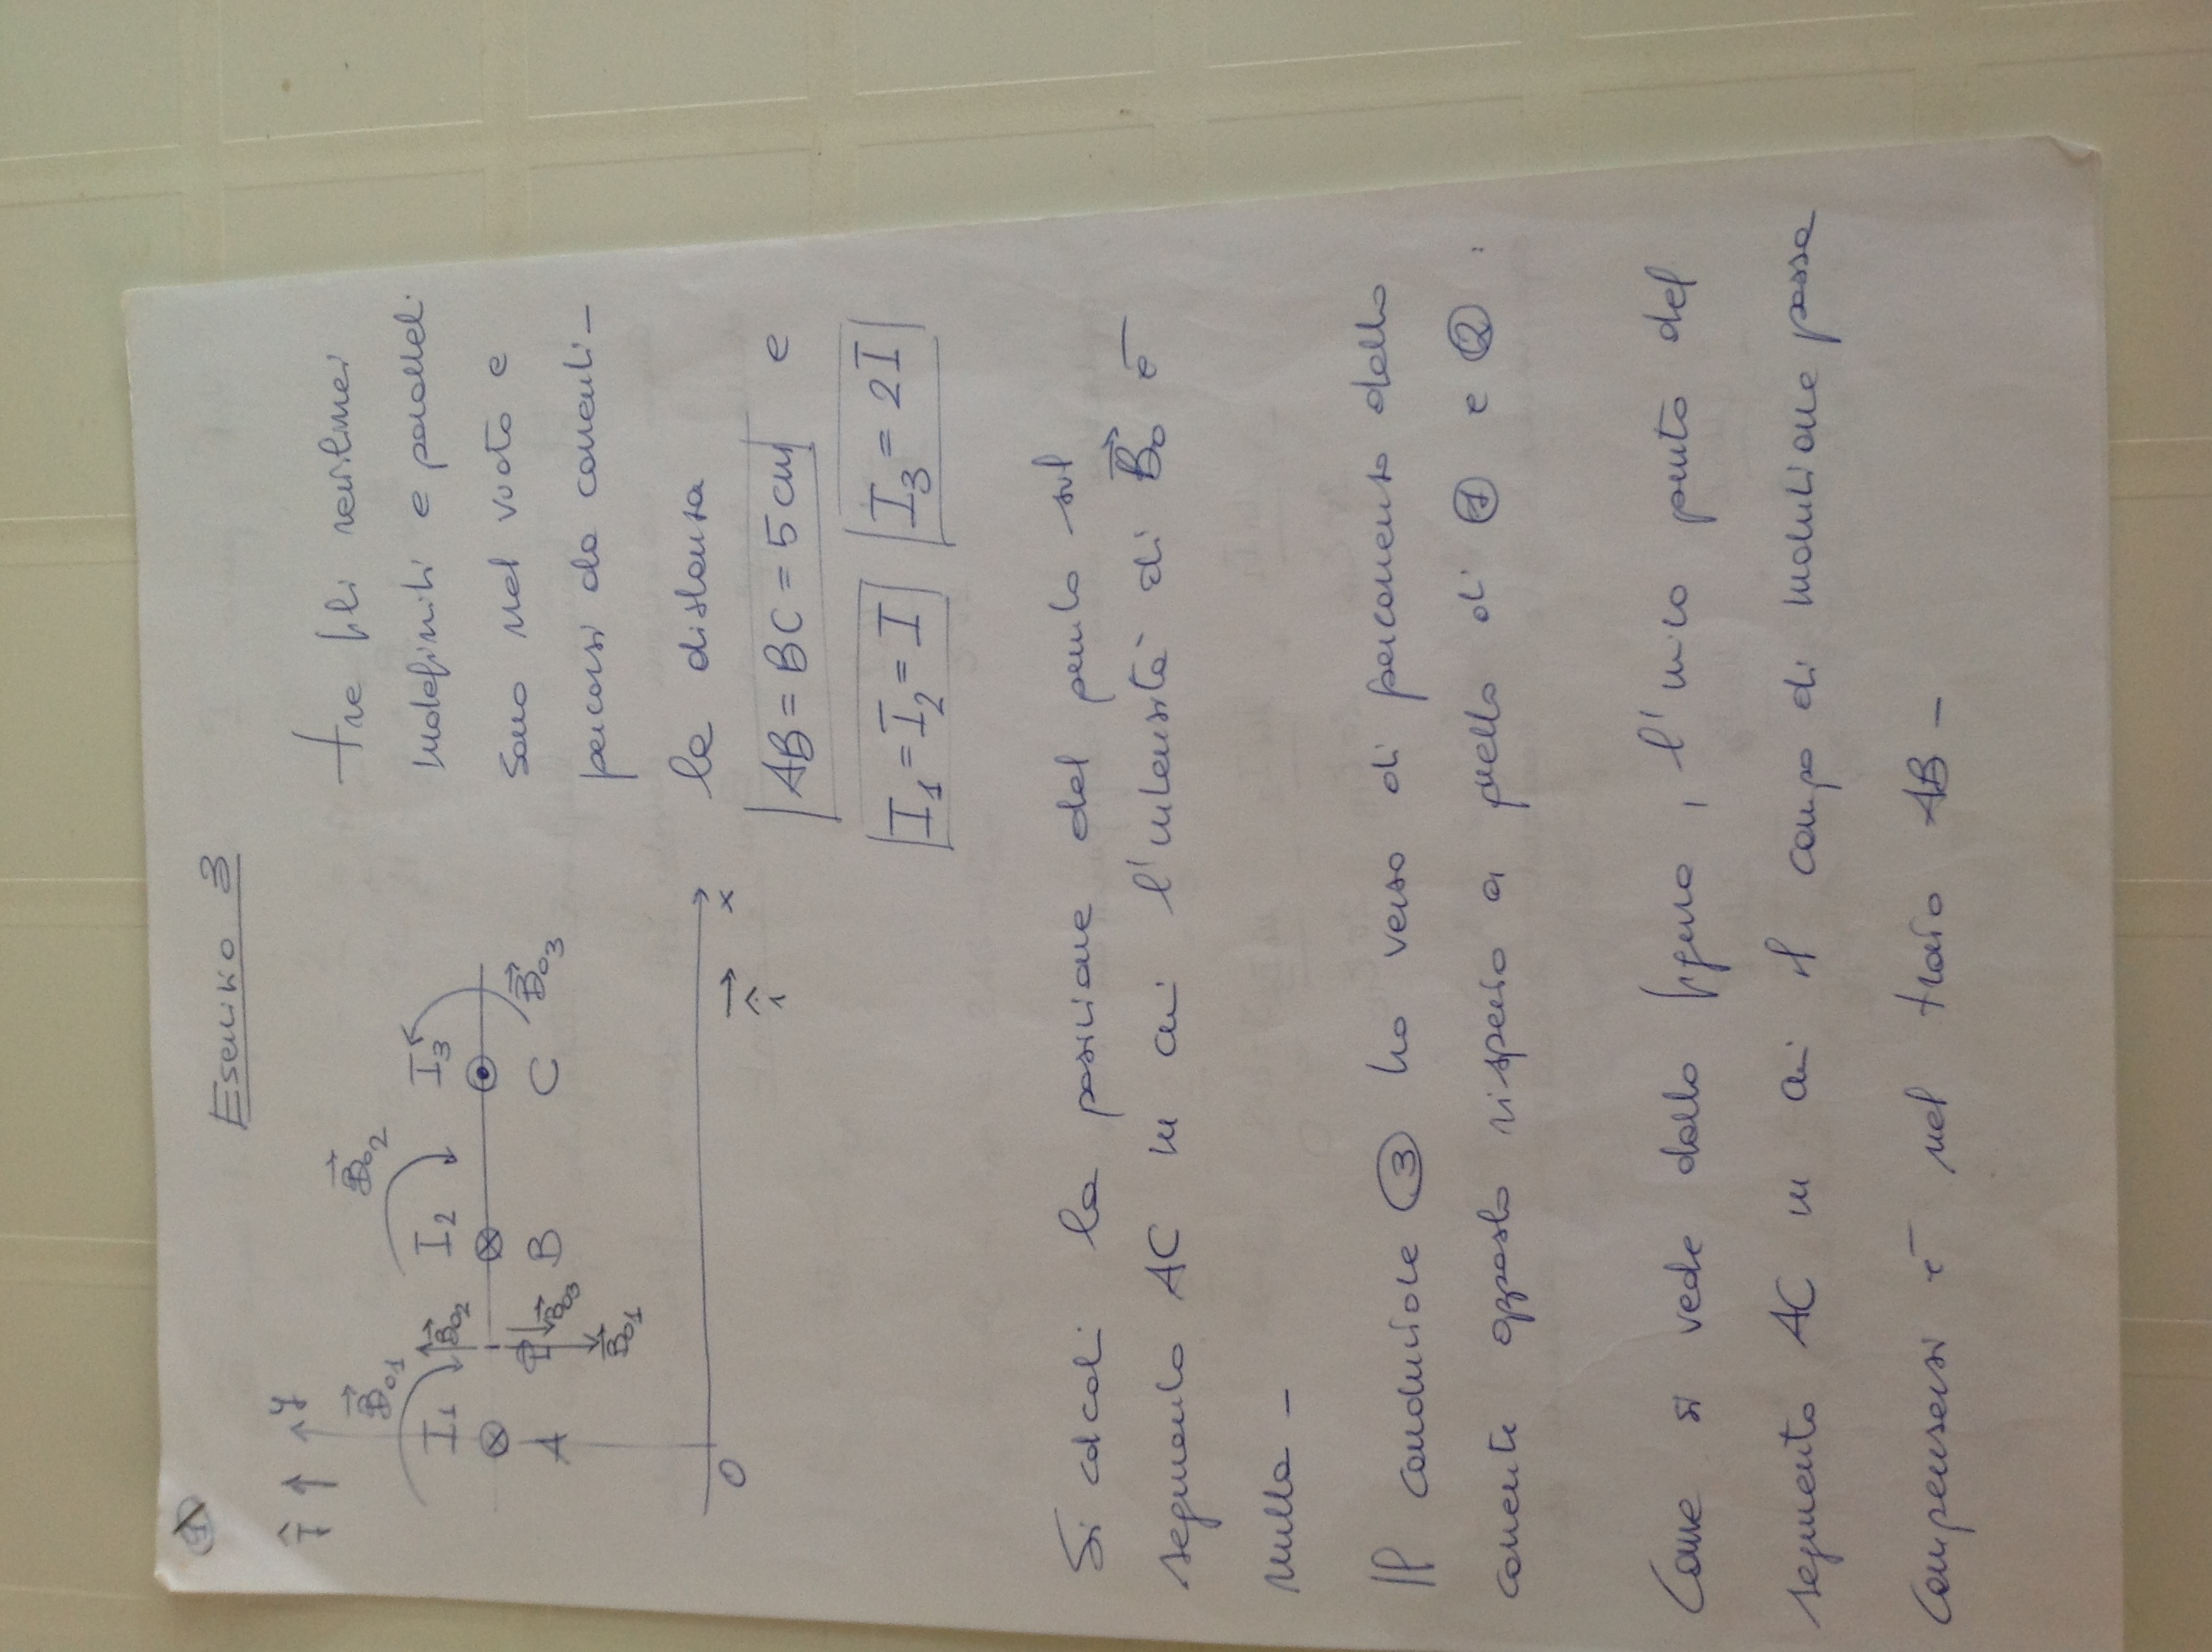 1
Esercizio 3
ĵ ↑ y
B⃗01 B⃗02
I1 B⃗02 I2 I3
A P B⃗03 B C B⃗03
B⃗01
O x
î
tre fili rettilinei
indefiniti e paralleli
sono nel vuoto e
percorsi da correnti -
la distanza
AB = BC = 5 cm e
I1 = I2 = I I3 = 2I
Si calcoli la posizione del punto sul
segmento AC in cui l'intensità di B⃗0 è
nulla -
Il conduttore 3 ha verso di percorrenza della
corrente opposto rispetto a quello di 1 e 2 :
Come si vede dalla figura, l'unico punto del
segmento AC in cui il campo di induzione possa
compensarsi è nel tratto AB -